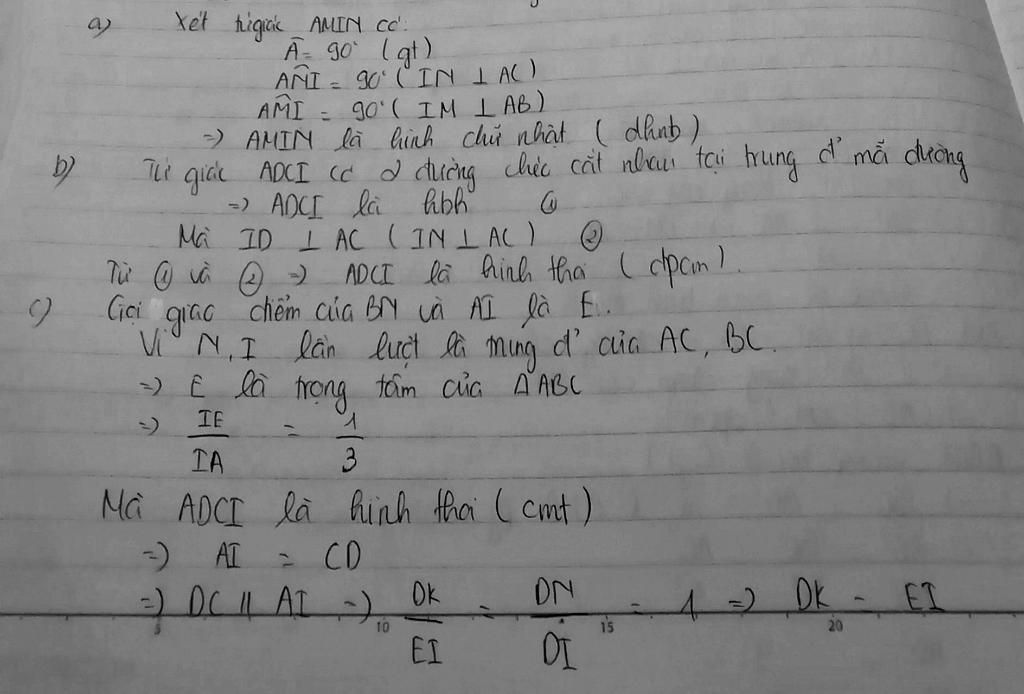 a) Xét tứ giác AMIN có:
Â = 90° (gt)
ANI = 90° (IN ⊥ AC)
AMI = 90° (IM ⊥ AB)
=> AMIN là hình chữ nhật (dhnb)
b) Tứ giác ADCI có 2 đường chéo cắt nhau tại trung đ' mỗi đường
=> ADCI là hbh ①
Mà ID ⊥ AC (IN ⊥ AC) ②
Từ ① và ② => ADCI là hình thoi (đpcm).
c) Gọi giao điểm của BN và AI là E.
Vì N, I lần lượt là trung đ' của AC, BC.
=> E là trọng tâm của ΔABC
=> IE/IA = 1/3
Mà ADCI là hình thoi (cmt)
=> AI = CD
=> DC // AI => DK/EI = DN/DI = 1 => DK = EI
5 10 15 20